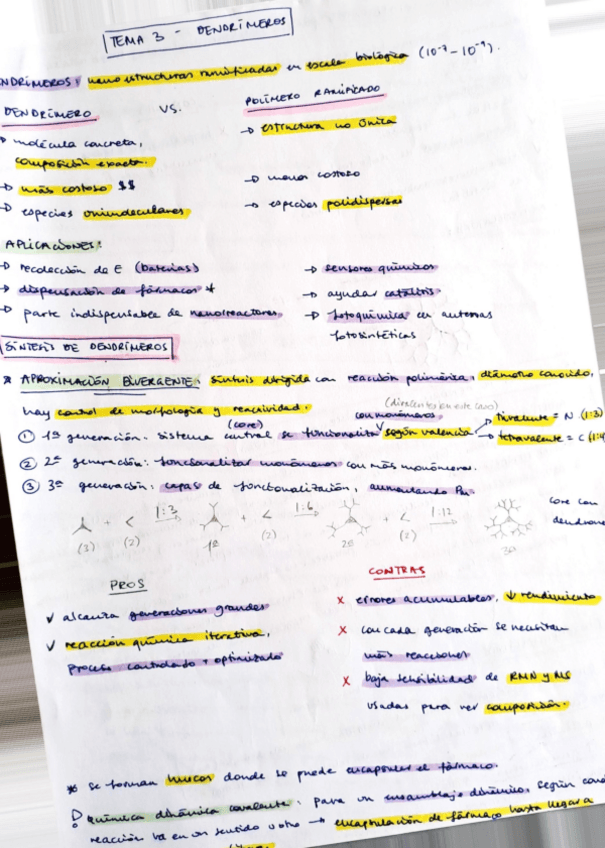 TEMA 3 - DENDRÍMEROS
NDRÍMEROS: nano estructuras ramificadas en escala biológica (10⁻⁷ - 10⁻⁹).
DENDRÍMERO VS. POLÍMERO RAMIFICADO
→ molécula concreta, composición exacta.
→ estructura no única
→ más costoso $$
→ menos costoso
→ especies unimoleculares
→ especies polidispersas
APLICACIONES:
→ recolección de E (baterías)
→ sensores químicos
→ dispensación de fármacos *
→ ayudar catálisis
→ parte indispensable de nanorreactores
→ fotoquímica en antenas fotosintéticas
SÍNTESIS DE DENDRÍMEROS
* APROXIMACIÓN DIVERGENTE: síntesis dirigida con reacción polimérica, diámetro conocido,
hay control de morfología y reactividad.
(divalentes en este caso)
(core) con monómeros
① 1ª generación: sistema central se funcionaliza según valencia
→ trivalente = N (1:3)
→ tetravalente = C (1:4
② 2ª generación: funcionalizar monómeros con más monómeros.
③ 3ª generación: capas de funcionalización, aumentando Pm
+ < 1:3 + < 1:6 + < 1:12
core con
dendrone
(3) (2) 1ª (2) 2ª (2) 3ª
PROS
CONTRAS
✓ alcanza generaciones grandes
✓ reacción química iterativa,
proceso controlado + optimizado
x errores acumulables, ↓ rendimiento
x con cada generación se necesitan
más reacciones
x baja sensibilidad de RMN y MS
usadas para ver composición.
* se forman huecos donde se puede encapsular el fármaco.
química dinámica covalente: para un ensamblaje dinámico, según cond
reacción va en un sentido u otro → encapsulación de fármaco hasta llegar a